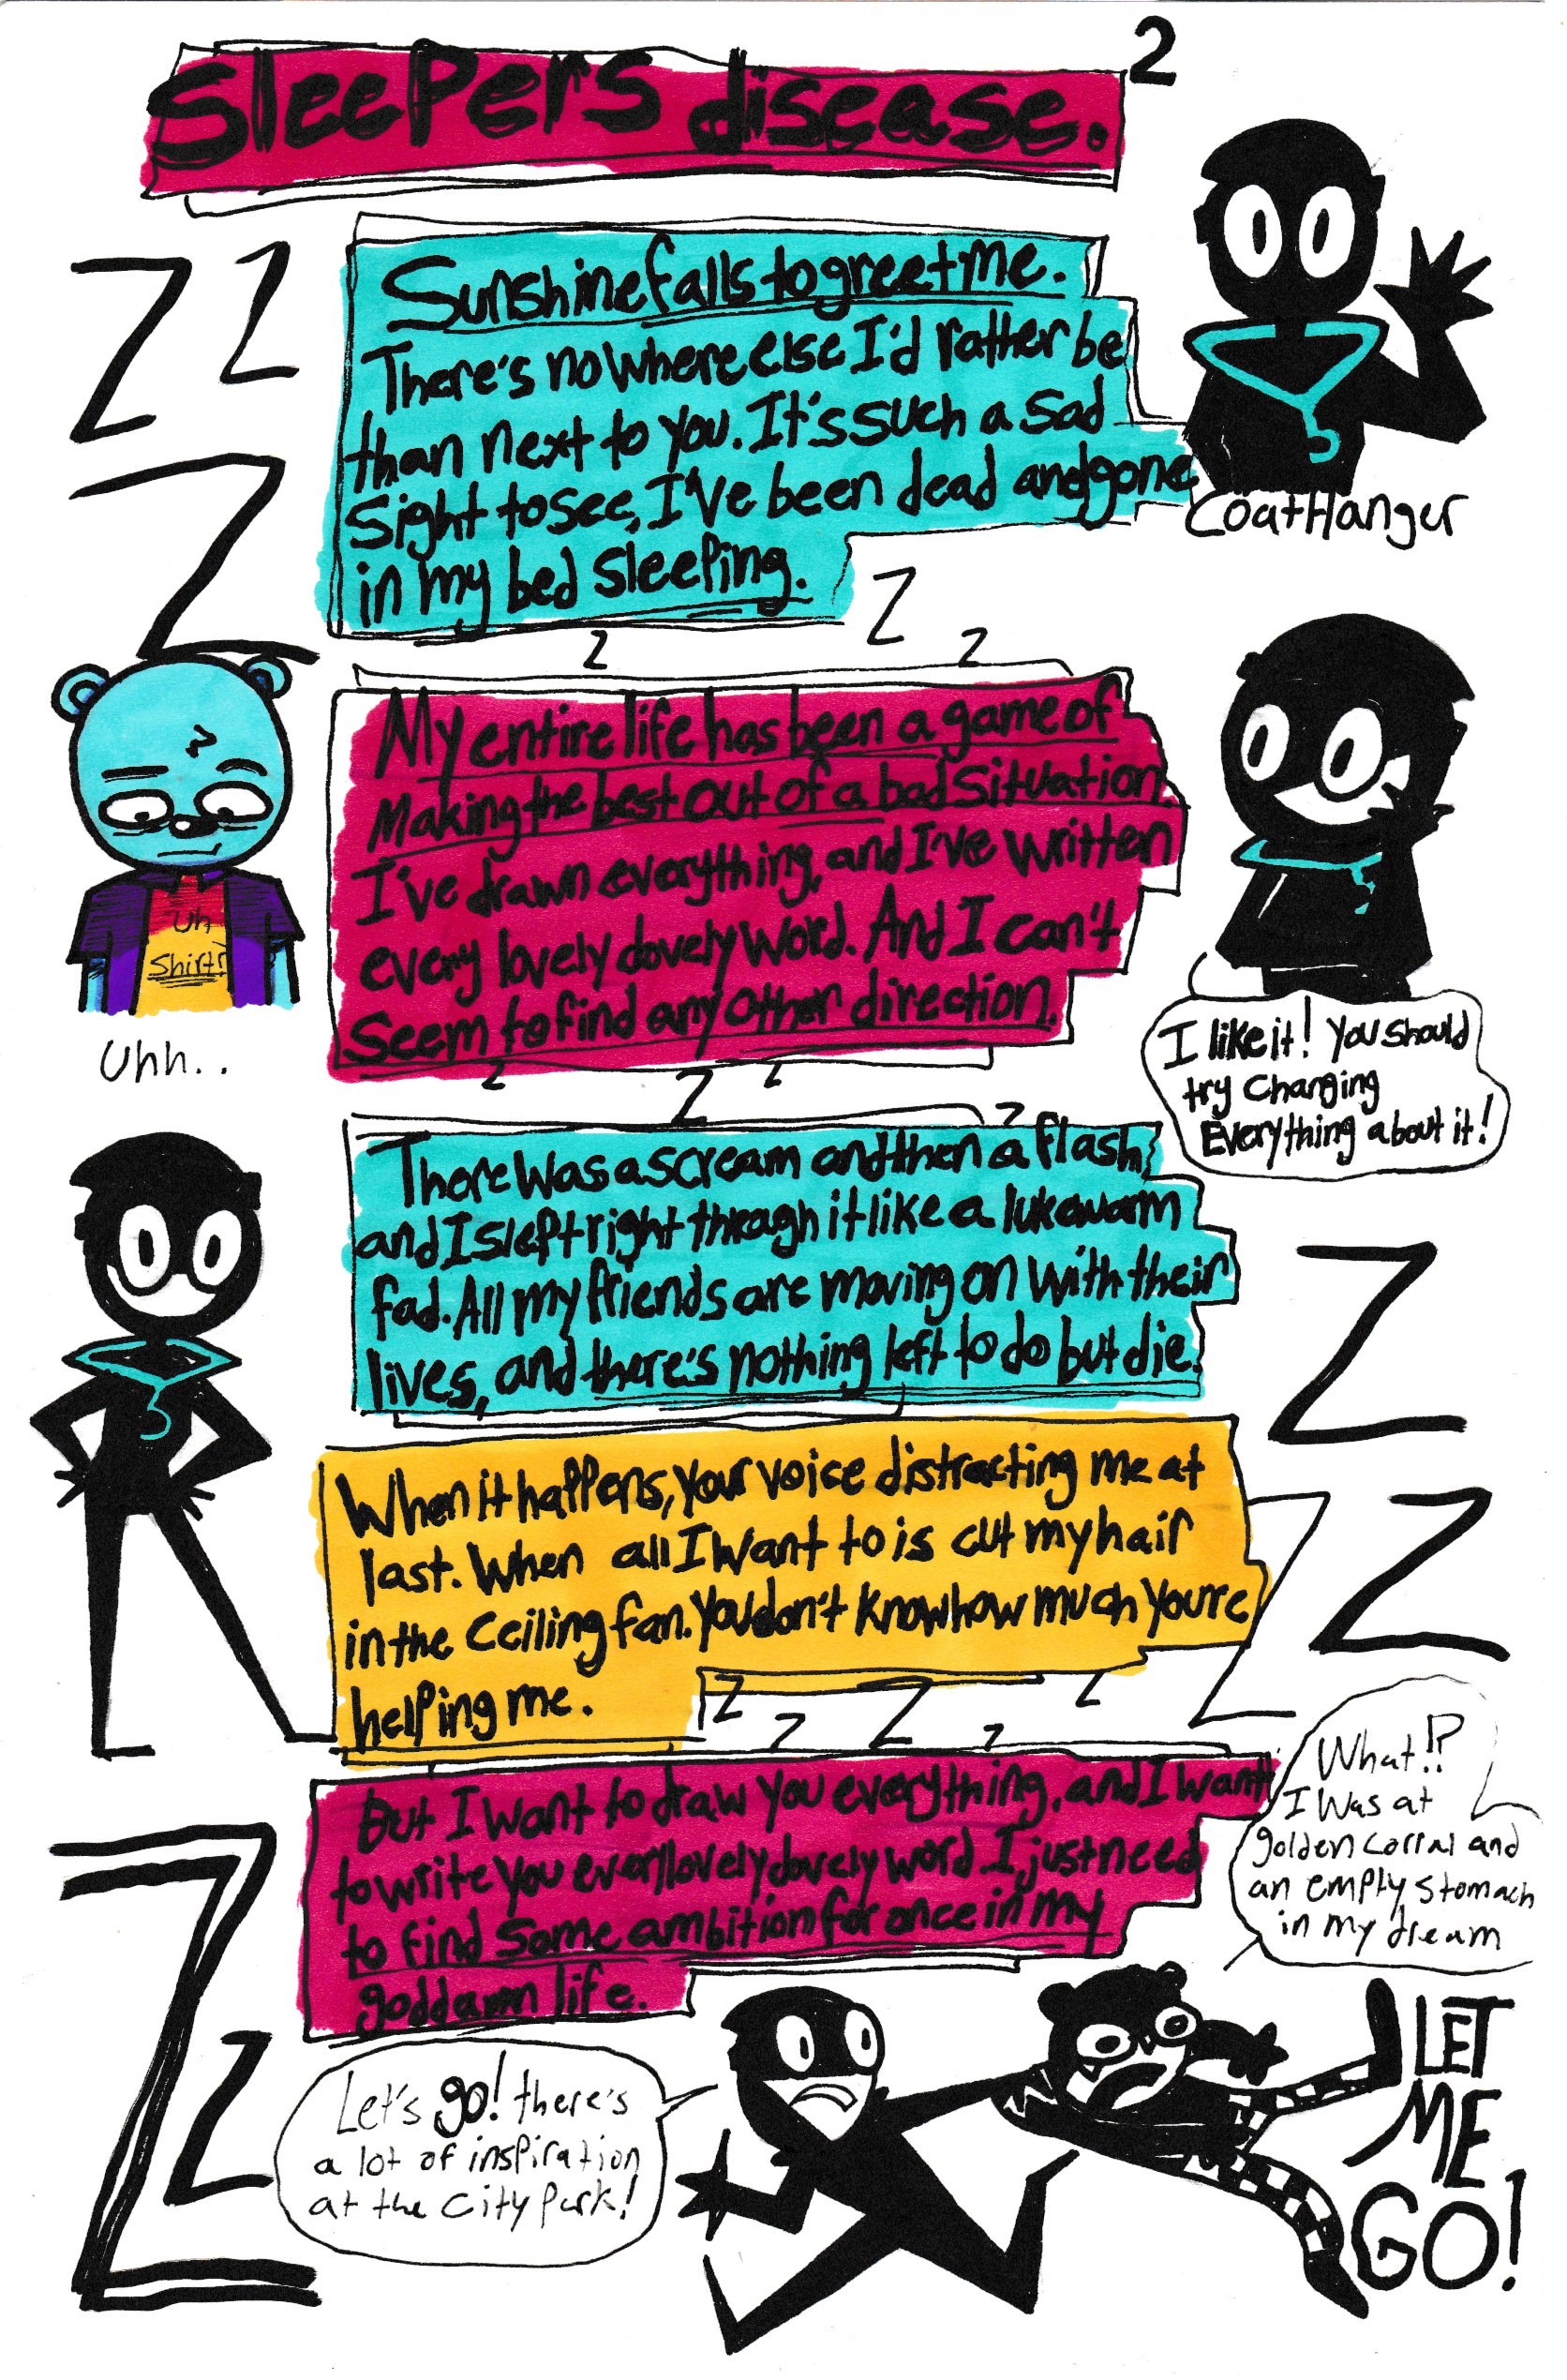 Sleepers disease.
2
Sunshine falls to greet me.
There's nowhere else I'd rather be
than next to you. It's such a sad
sight to see, I've been dead and gone
in my bed sleeping.
CoatHanger
My entire life has been a game of
Making the best out of a bad situation.
I've drawn everything, and I've written
every lovely dovely word. And I can't
seem to find any other direction.
Uh
Shirt?
Uhh..
I like it! You should
try Changing
Everything about it!
There was a scream and then a flash,
and I slept right through it like a lukewarm
fad. All my friends are moving on with their
lives, and there's nothing left to do but die.
When it happens, your voice distracting me at
last. When all I want to is cut my hair
in the ceiling fan. You don't know how much you're
helping me.
But I want to draw you everything, and I want
to write you every lovely dovely word. I just need
to find some ambition for once in my
goddamn life.
What!?
I was at
golden corral and
an empty stomach
in my dream
Let's go! there's
a lot of inspiration
at the city park!
LET
ME
GO!
Z Z
Z
Z
Z Z
Z Z Z
Z
Z
Z
Z
Z Z Z Z Z
Z
Z